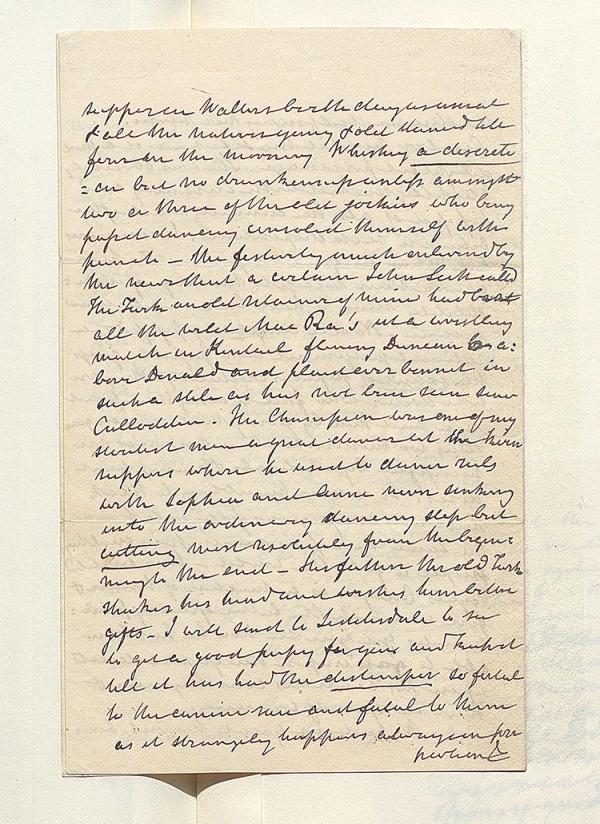 supper on Walters birth day as usual
& all the natives young & old danced till
four in the morning Whiskey a discreti
=on but no drunkenness unless amongst
two or three of the old jockies who being
past dancing consoled themself with
punch – the festivity much enlivend by
the news that a certain John Scott calld
The Turk an old retainer of mine had beat
all the wild Mac Ra's at a wrestling
match in Kintail flinging Duncan a:
bove Donald and plaid over bonnet in
such a stile as has not been seen since
Culloden. The Champion was one of my
stoutest men a great dancer at the kirn
suppers where he used to dance reels
with Sophia and Anne never sinking
into the ordinary dancing step but
cutting most resolutely from the begin:
ning to the end – His father the old Turk
shakes his head and wishes him better
gifts – I will send to Liddesdale to see
to get a good puppy for you and keep it
till it has had the distemper so fatal
to the canine race and fatal to them
as it strangely happens always in pro
portion